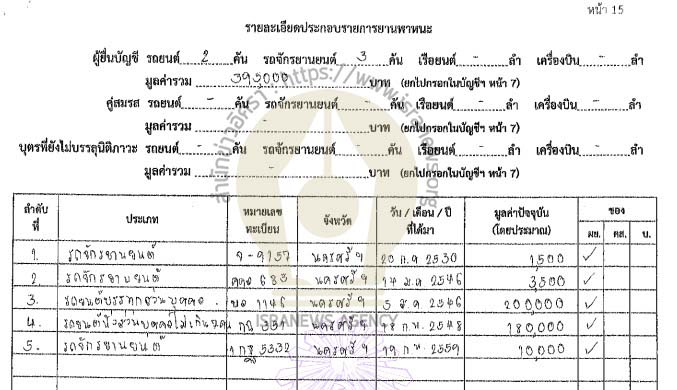 หน้า 15
รายละเอียดประกอบรายการยานพาหนะ
ผู้ยื่นบัญชี รถยนต์ 2 คัน รถจักรยานยนต์ 3 คัน เรือยนต์ - ลำ เครื่องบิน - ลำ
มูลค่ารวม 395000 บาท (ยกไปกรอกในบัญชีฯ หน้า 7)
คู่สมรส รถยนต์ - คัน รถจักรยานยนต์ - คัน เรือยนต์ - ลำ เครื่องบิน - ลำ
มูลค่ารวม - บาท (ยกไปกรอกในบัญชีฯ หน้า 7)
บุตรที่ยังไม่บรรลุนิติภาวะ รถยนต์ - คัน รถจักรยานยนต์ - คัน เรือยนต์ - ลำ เครื่องบิน - ลำ
มูลค่ารวม - บาท (ยกไปกรอกในบัญชีฯ หน้า 7)
สำนักข่าวอิศรา : https://www.isranews.org
ลำดับที่ ประเภท หมายเลขทะเบียน จังหวัด วัน / เดือน / ปี ที่ได้มา มูลค่าปัจจุบัน (โดยประมาณ) ของ
ผย. คส. บ.
1. รถจักรยานยนต์ 9-9157 นครศรีฯ 20 ก.ค 2530 1,500 ✓
2 รถจักรยานยนต์ 683 นครศรีฯ 14 ม.ค 2546 3,500 ✓
3. รถยนต์บรรทุกส่วนบุคคล. บล 1146 นครศรีฯ 5 ม.ค 2546 200,000 ✓
4. รถยนต์นั่งส่วนบุคคลไม่เกิน 7 คน 551 นครศรีฯ 18 ก.พ. 2548 180,000 ✓
5. รถจักรยานยนต์ 5332 นครศรีฯ 19 ก.พ. 2559 10,000 ✓
ISRANEWS AGENCY